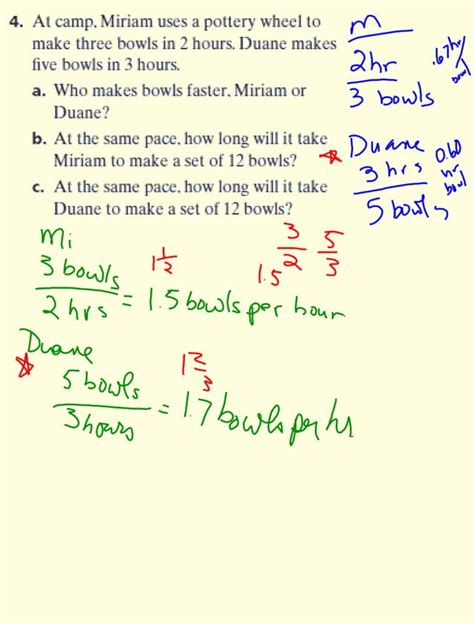 4. At camp, Miriam uses a pottery wheel to
make three bowls in 2 hours. Duane makes
five bowls in 3 hours.
a. Who makes bowls faster, Miriam or
Duane?
b. At the same pace, how long will it take
Miriam to make a set of 12 bowls?
c. At the same pace, how long will it take
Duane to make a set of 12 bowls?
m
2hr
3 bowls
.67hr/
bowl
Duane
3 hrs
5 bowls
0.60
hr
bowl
Mi
3 bowls
2 hrs
= 1.5 bowls per hour
1 1/2
1.5
3/2
5/3
Duane
5 bowls
3 hours
= 1.7 bowls per hr
1 2/3